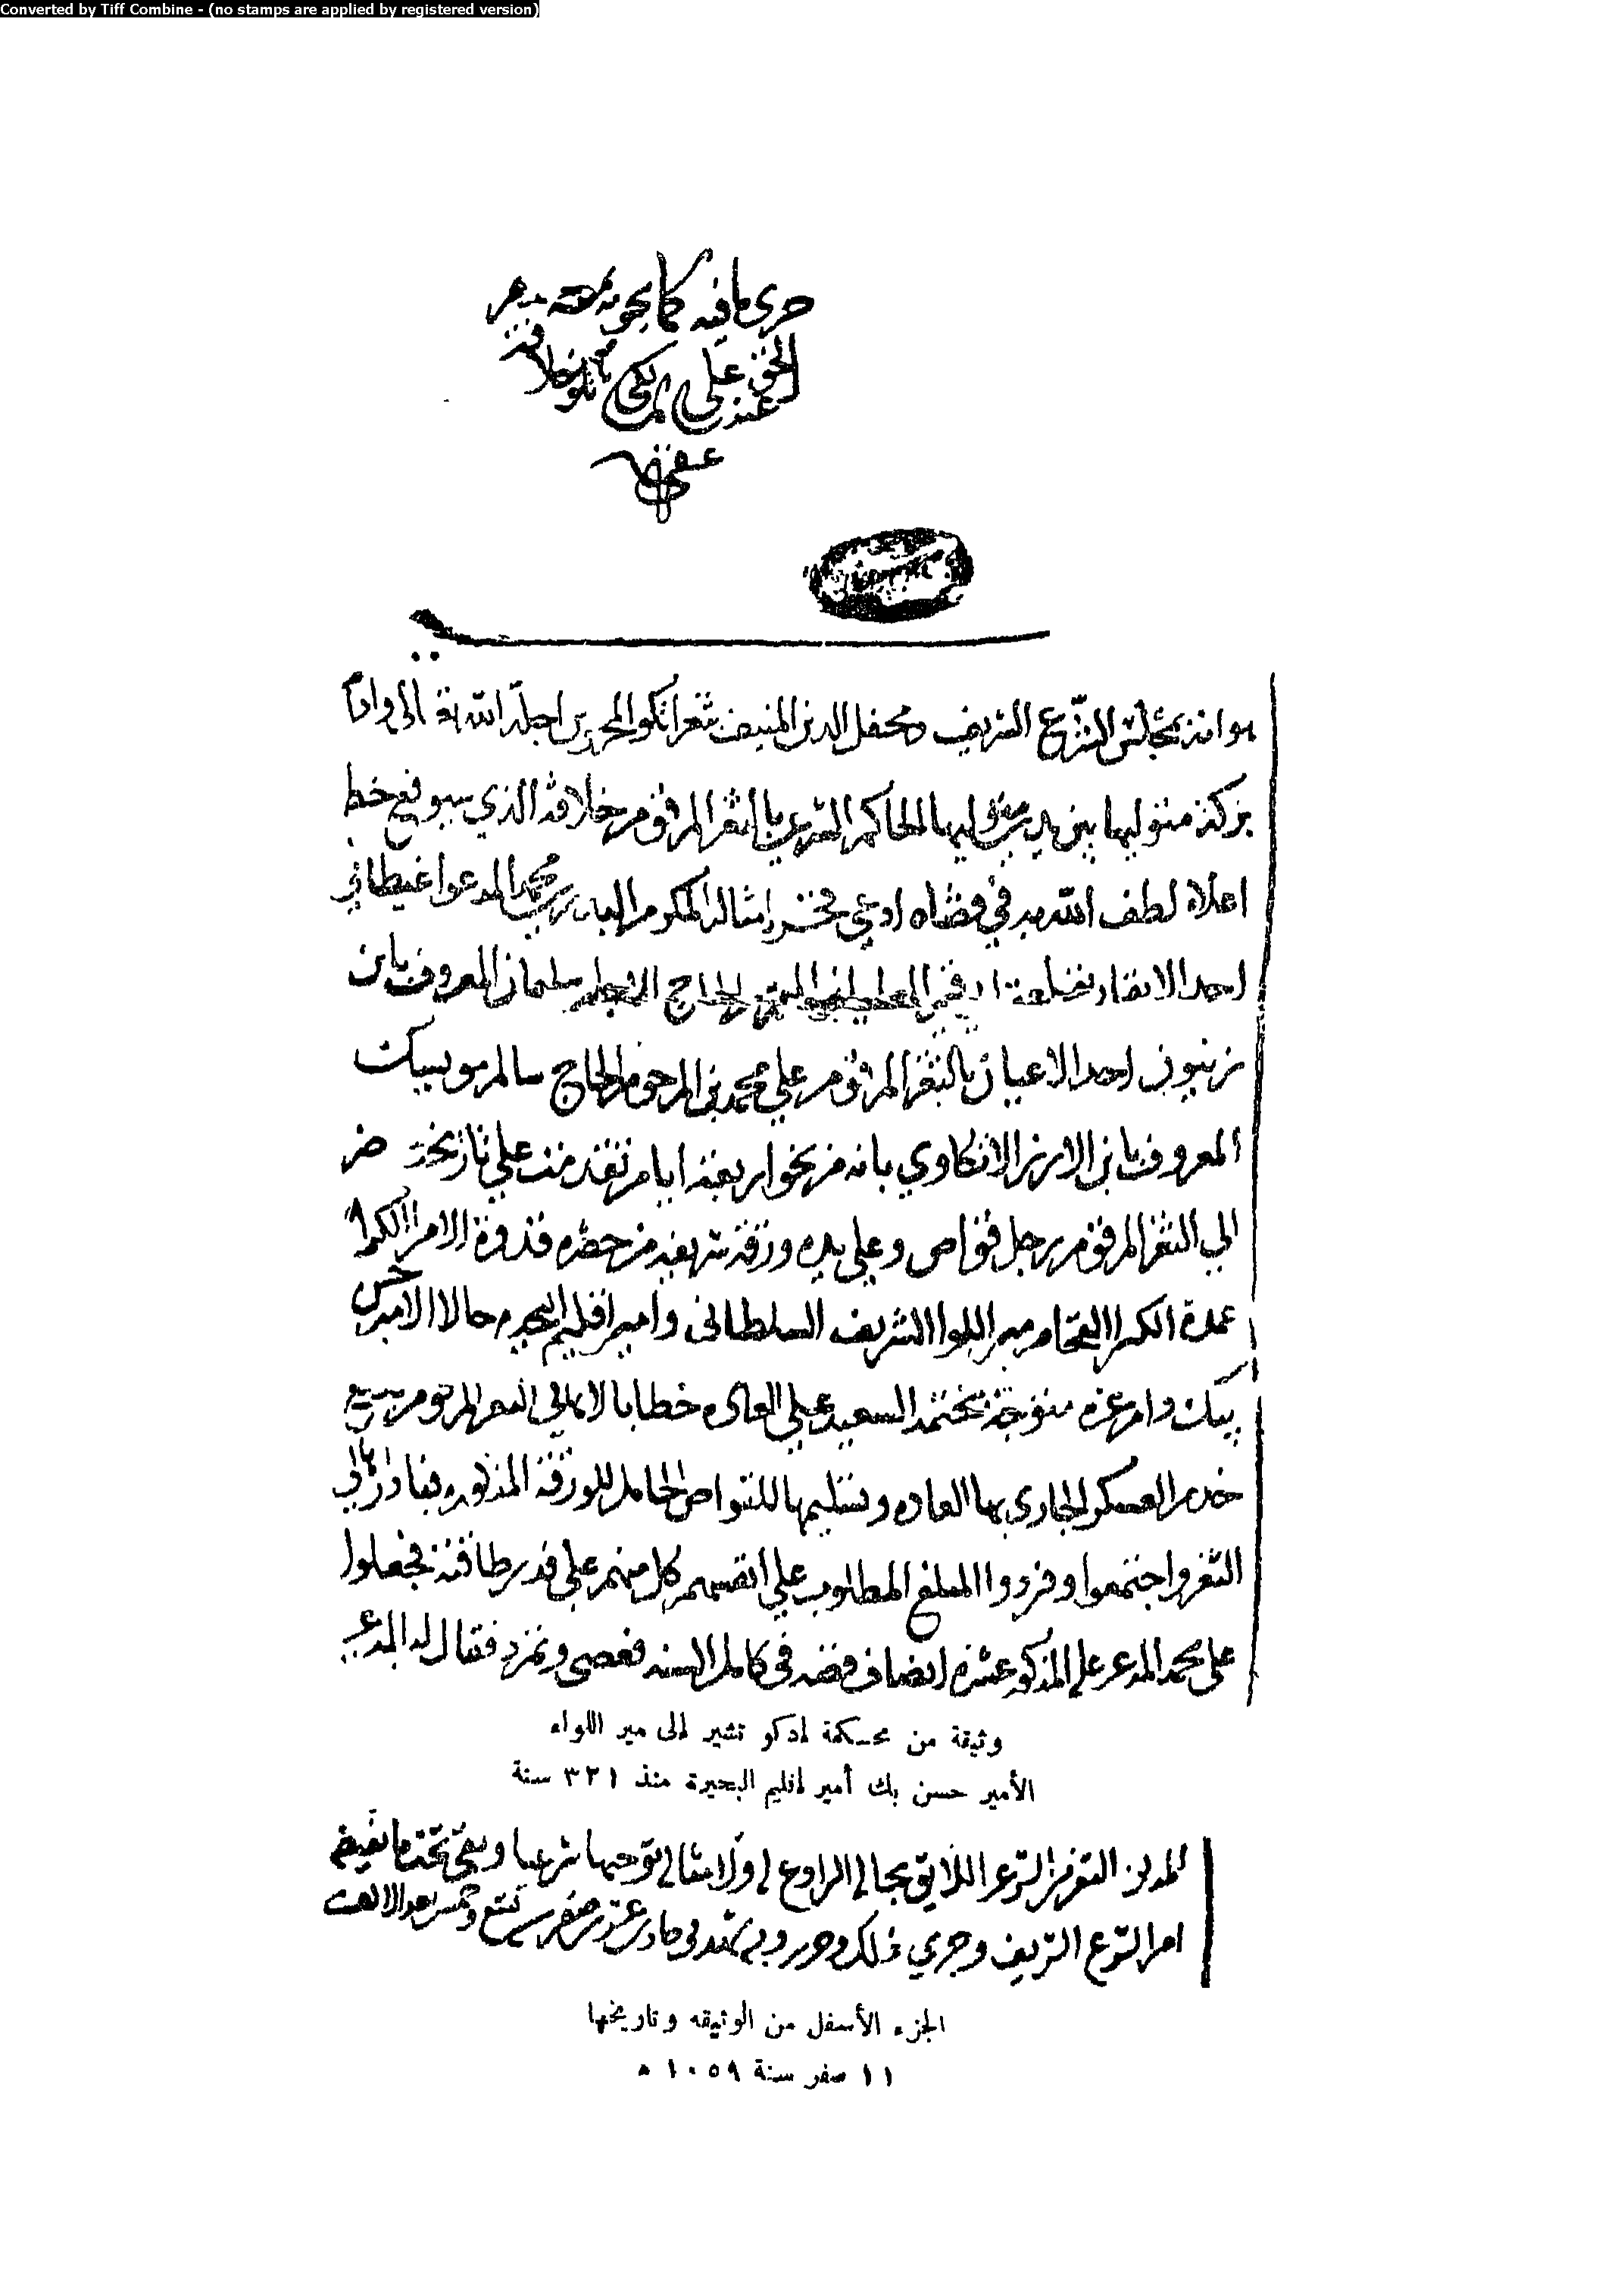 Converted by Tiff Combine - (no stamps are applied by registered version)
جرى ما فيه كما
الحق علي
عفي
هو انه بمجلس الشرع الشريف ومحفل الدين المنيف بثغر اتكو المحروس اجله الله تعالى وادام
بركة متوليها بين يدي متوليها الحاكم الشرعي بالثغر المرقوم خلافة الذي سيوقع خط
اعلاه لطف الله به في قضاه ادعي فخر امثاله المكرم محمد المدعوا غيطاني
احد الانفار بقلعة الحاج سليمان المعروف بابن
زيتون احد الاعيان بالثغر المرقوم علي محمد بن المرحوم الحاج سالم مو بسيك
المعروف بابن الارز الاتكاوي بانه من نحو اربعة ايام تقدمت علي تاريخه حضر
الي الثغر المرقوم رجل قواص وعلي يده ورقة شريفه من حضره قدوة الامرا الكرام
عمدة الكبرا الفخام مير اللوا الشريف السلطاني وامير اقليم البحيره حالا الامير حسن
بيك دام عزه متوجة بختمه السعيد علي العاده خطابا لاهالي الثغر المرقوم
خدم العسكر الجاري بها العاده وتسليمها للقواص الحامل للورقة المذكوره فبادر اهالي
الثغر واجتمعوا وفردوا المبلغ المطلوب علي انفسهم كل منهم علي قدر طاقته فجعلوا
على محمد المدعى عليه المذكور عشرة انصاف فضه في كامل السنه فعصى وتمرد فقال له المدعي
وثيقة من محكمة إدكو تشير إلى مير اللواء
الأمير حسن بك أمير إقليم البحيرة منذ ٣٢١ سنة
التعزير الشرعي اللايق بحاله الرادع له ولامثاله توجيها شرعيا وبقي تحت ما يقتضيه
امر الشرع الشريف وجري ذلك وحرر وبه شهد في حادي عشر صفر سنة تسع وخمسين بعد الالف
الجزء الأسفل من الوثيقه وتاريخها
١١ صفر سنة ١٠٥٩ ه